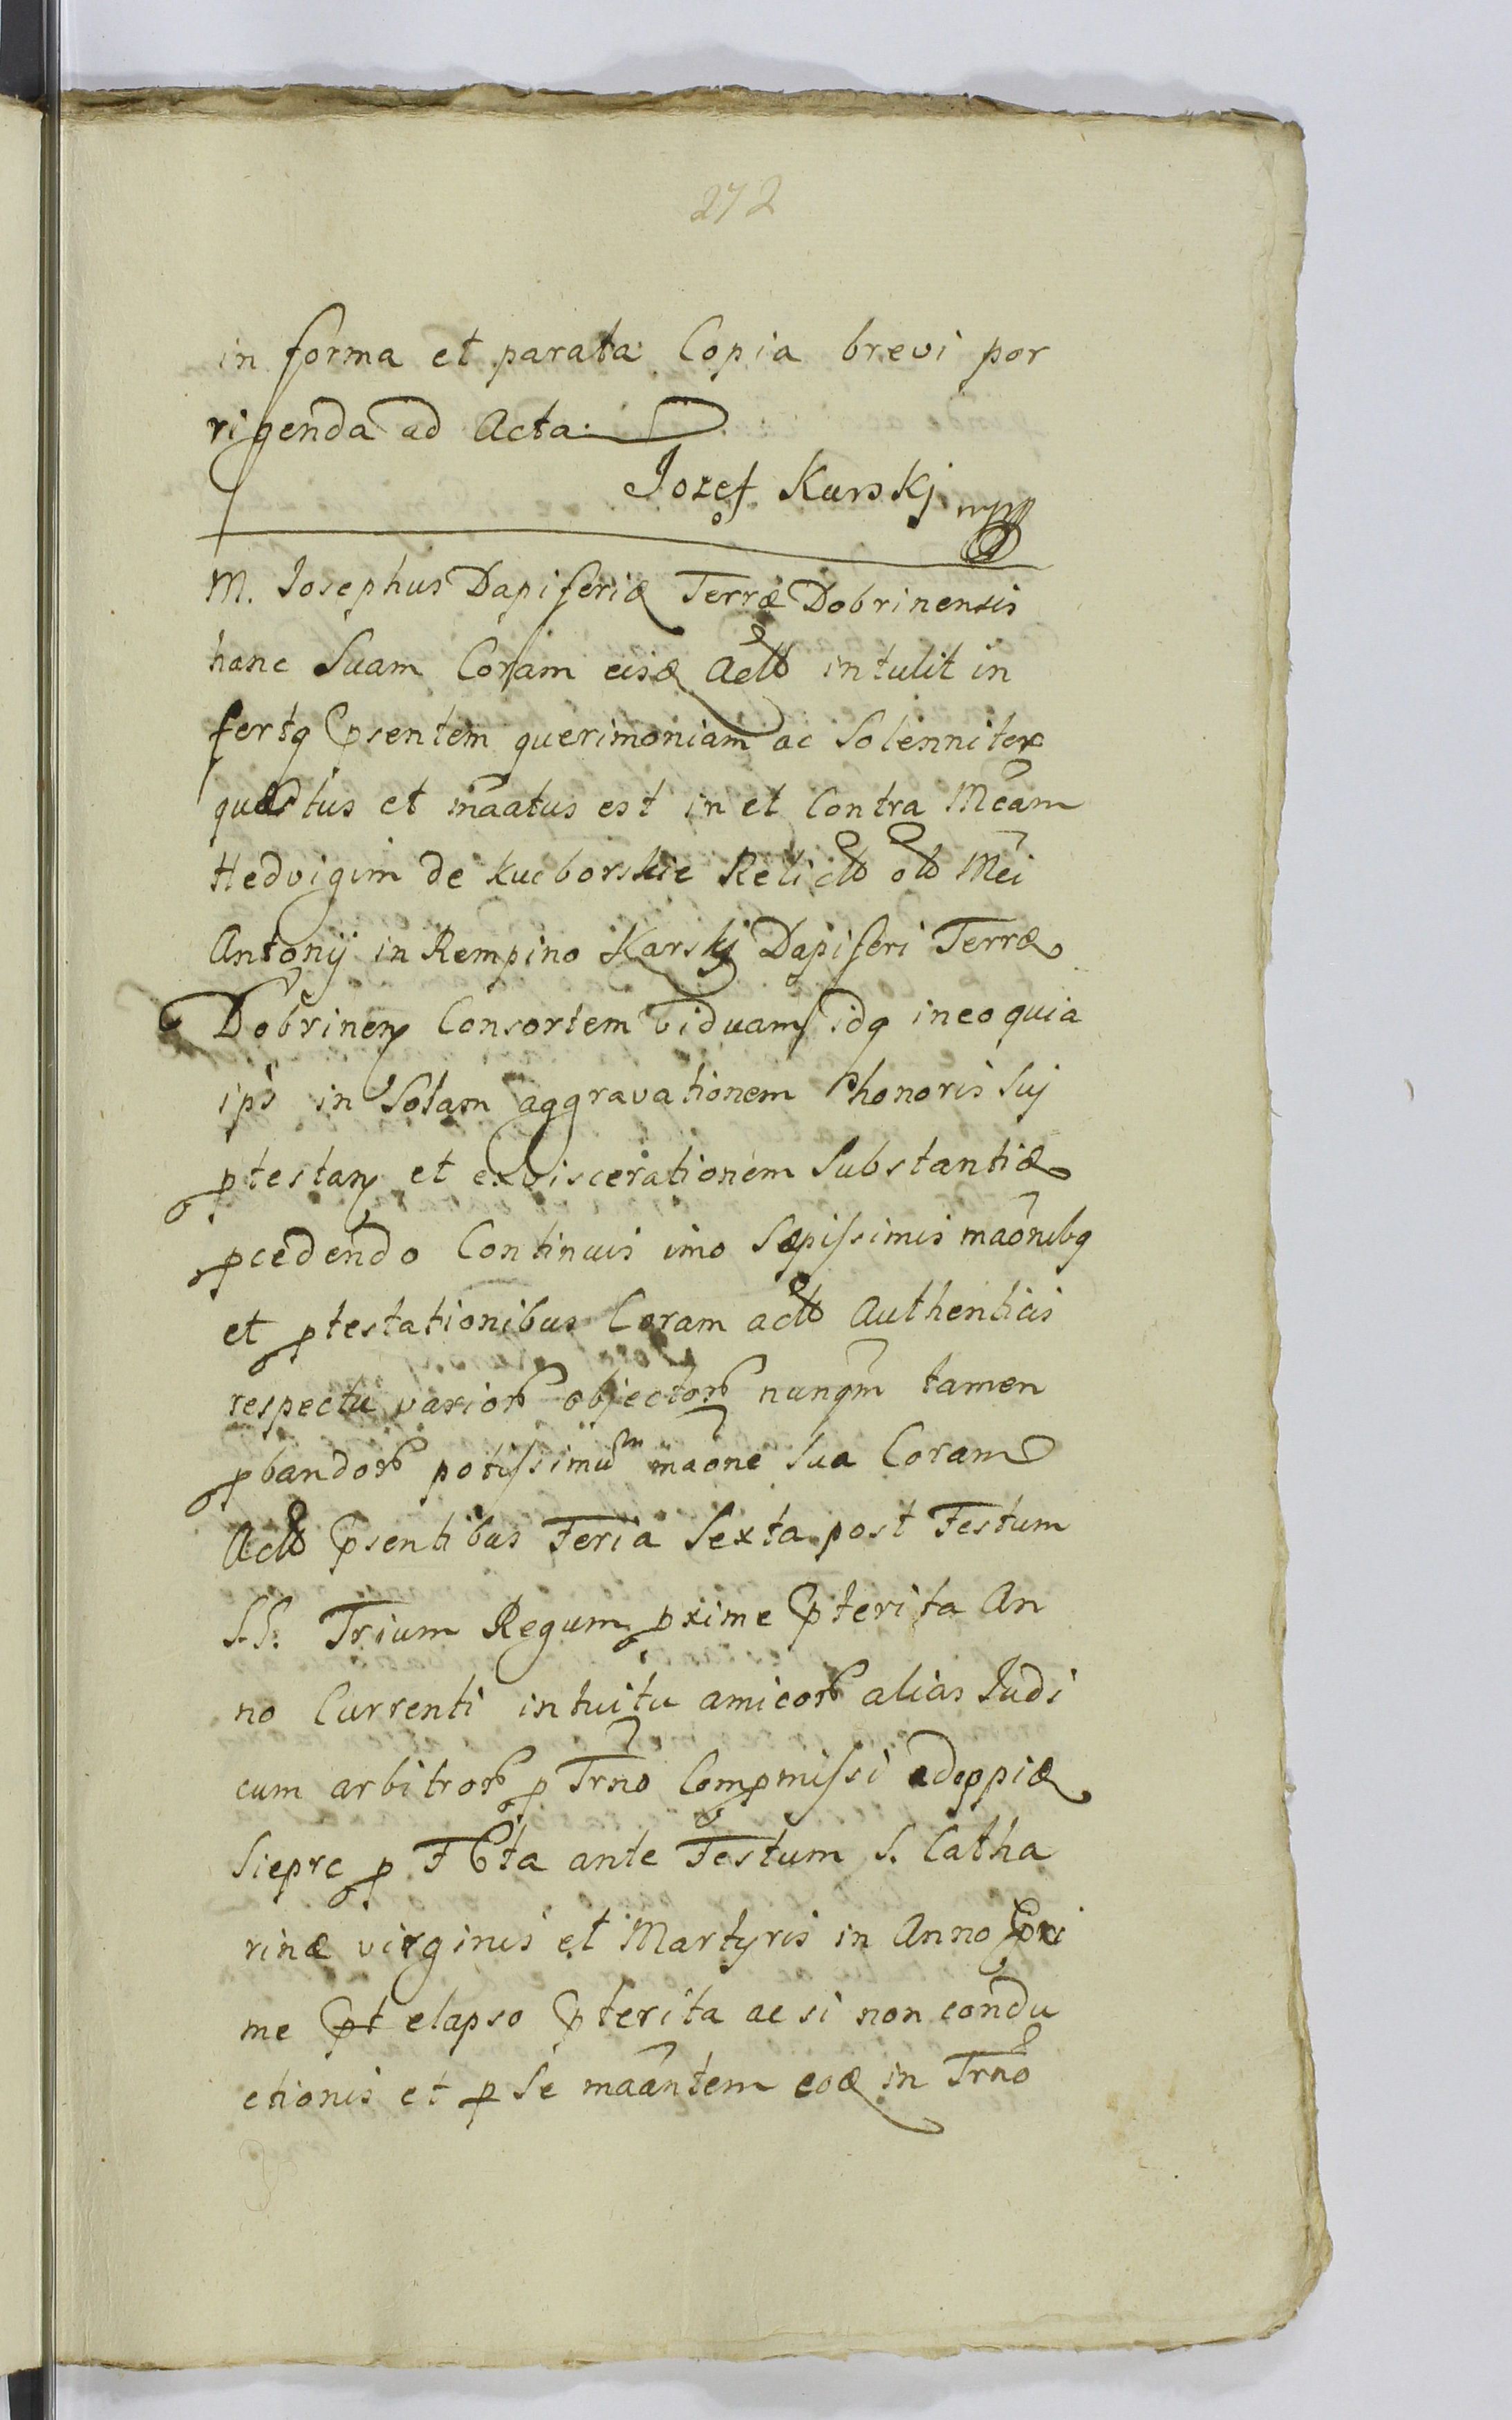 272
in forma et parata Copia brevi por
rigenda ad Acta
Jozef Karskj mpp
M. Josephus Dapiferidæ Terræ Dobrinensis
hanc Suam Coram eisdæ Actis intulit in
fertq p̄sentem querimoniam ac Solenniter
quæstus et mãatus est in et Contra Mcam
Hedvigim de Kucborskie Relictã olim Mci
Antonij in Rempino Karskj Dapiferi Terræ
Dobrinen Consortem viduam idq in eo quia
ipsã in Solam aggravationem honoris Suj
ptestan et exviscerationem Substantiæ
pcedendo Continuis imo Sæpissimis maõnibq
et ptestationibus Coram actis Authenticis
respectu varior objector nunqm̃ tamen
pbandor potissimum maõne Sua Coram
Actis p̄sentibus Feria Sexta post Festum
S.S. Trium Regum pxime p̄terita An
no Currenti intuitu amicor alias Judi
cum arbitror p Trno Compmissi ad oppid
Sieprc p F 6ta ante Festum S. Catha
rinæ virginis et Martyris in Anno pxi
me elapso p̄terita ac si non condu
ctionis et p Se maãntem eod in Trno